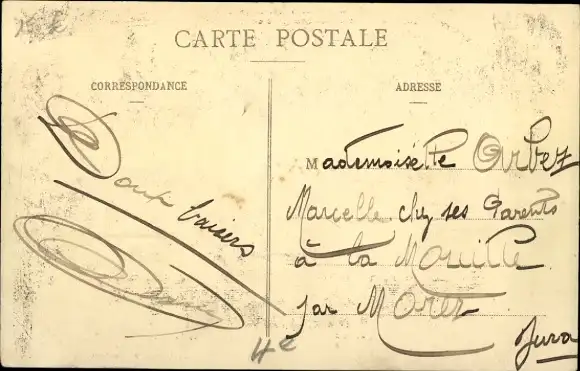 CARTE POSTALE
CORRESPONDANCE
Doux baisers
ADRESSE
Mademoiselle Orbez
Marcelle chez ses Parents
à la Mouille
par Morez
Jura
4€